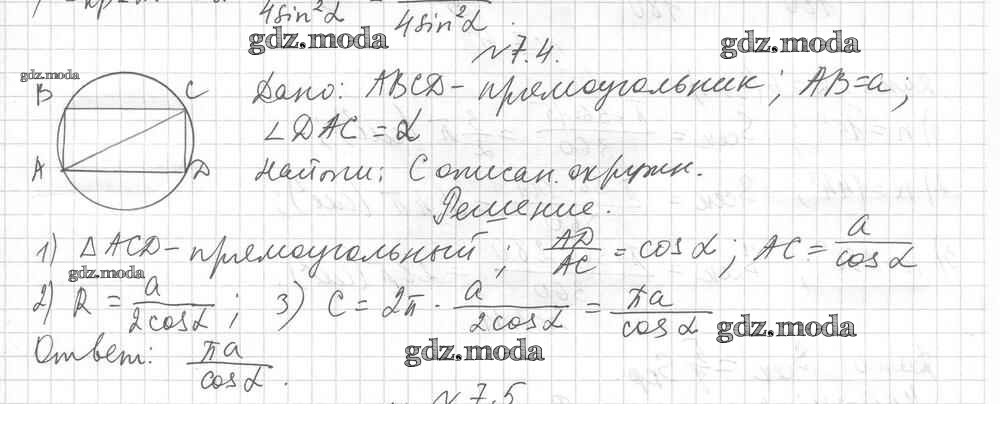 4sin²α 4sin²α.
gdz.moda
№7.4.
gdz.moda
gdz.moda
B C
A D
Дано: ABCD – прямоугольник; AB=a;
∠DAC = α
Найти: C описан. окружн.
Решение.
1) △ACD – прямоугольный; AD/AC = cosα; AC = a/cosα
gdz.moda
2) R = a/2cosα; 3) C = 2π · a/2cosα = πa/cosα
gdz.moda
Ответ: πa/cosα.
gdz.moda
№7.5